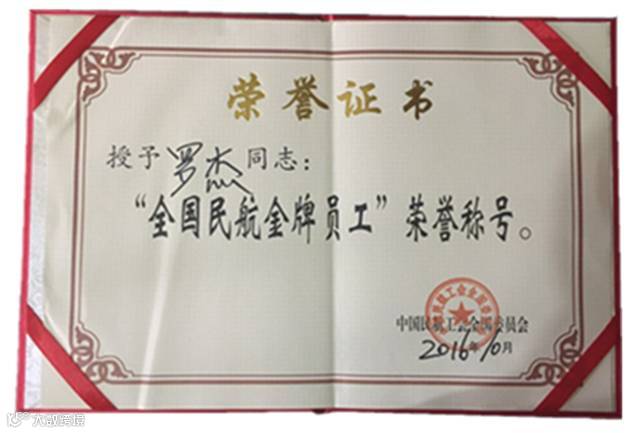 荣誉证书
授予罗杰同志：
“全国民航金牌员工”荣誉称号。
中国民航工会全国委员会
2016年10月
大数跨境